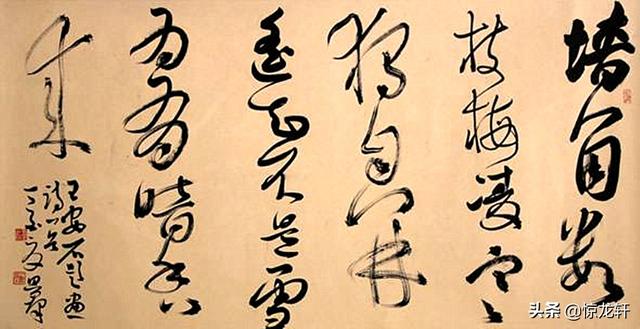 墙角数
枝梅凌寒
独自开
遥知不是雪
为有暗香
来
王安石
诗一首
头条 @惊龙轩